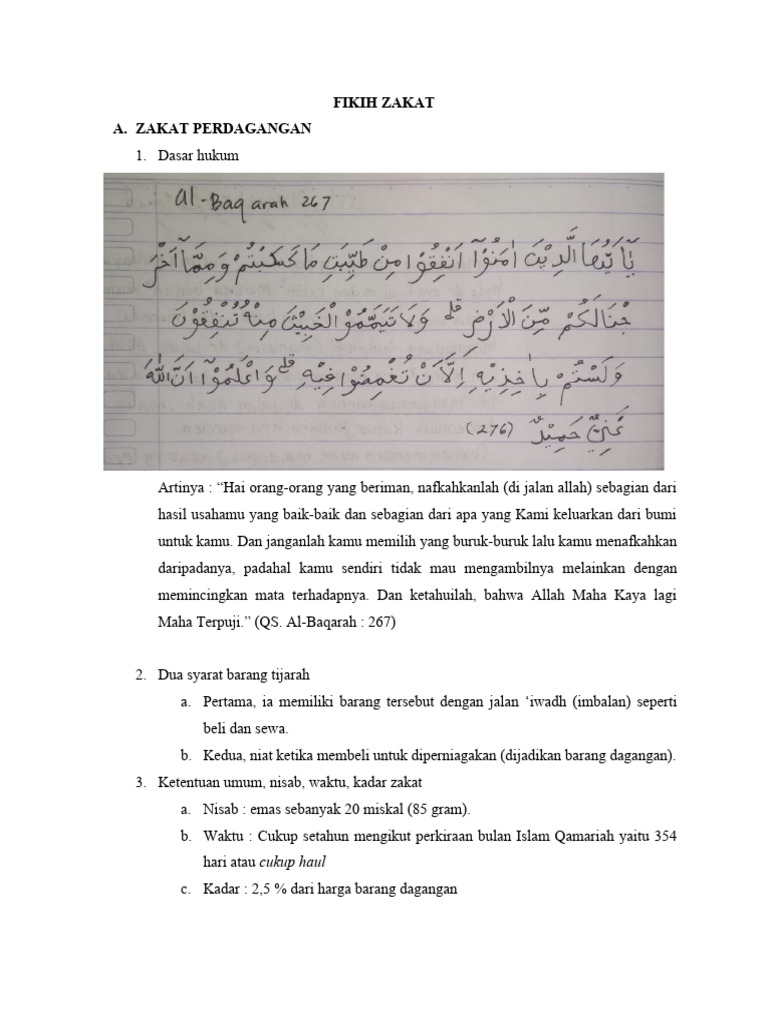 FIKIH ZAKAT
A. ZAKAT PERDAGANGAN
1. Dasar hukum
al-Baqarah 267
يٰٓاَيُّهَا الَّذِيْنَ اٰمَنُوْٓا اَنْفِقُوْا مِنْ طَيِّبٰتِ مَا كَسَبْتُمْ وَمِمَّآ اَخْرَ
جْنَا لَكُمْ مِّنَ الْاَرْضِ ۗ وَلَا تَيَمَّمُوْا الْخَبِيْثَ مِنْهُ تُنْفِقُوْنَ
وَلَسْتُمْ بِاٰخِذِيْهِ اِلَّآ اَنْ تُغْمِضُوْا فِيْهِ ۗ وَاعْلَمُوْٓا اَنَّ اللّٰهَ
غَنِيٌّ حَمِيْدٌ (276)
Artinya : “Hai orang-orang yang beriman, nafkahkanlah (di jalan allah) sebagian dari
hasil usahamu yang baik-baik dan sebagian dari apa yang Kami keluarkan dari bumi
untuk kamu. Dan janganlah kamu memilih yang buruk-buruk lalu kamu menafkahkan
daripadanya, padahal kamu sendiri tidak mau mengambilnya melainkan dengan
memincingkan mata terhadapnya. Dan ketahuilah, bahwa Allah Maha Kaya lagi
Maha Terpuji.” (QS. Al-Baqarah : 267)
2. Dua syarat barang tijarah
a. Pertama, ia memiliki barang tersebut dengan jalan ‘iwadh (imbalan) seperti
beli dan sewa.
b. Kedua, niat ketika membeli untuk diperniagakan (dijadikan barang dagangan).
3. Ketentuan umum, nisab, waktu, kadar zakat
a. Nisab : emas sebanyak 20 miskal (85 gram).
b. Waktu : Cukup setahun mengikut perkiraan bulan Islam Qamariah yaitu 354
hari atau cukup haul
c. Kadar : 2,5 % dari harga barang dagangan